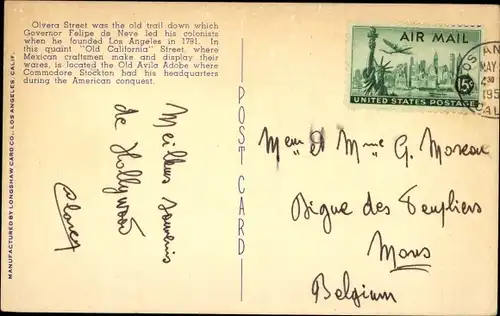 Olvera Street was the old trail down which
Governor Felipe de Neve led his colonists
when he founded Los Angeles in 1781. In
this quaint "Old California" Street, where
Mexican craftsmen make and display their
wares, is located the Old Avila Adobe where
Commodore Stockton had his headquarters
during the American conquest.
MANUFACTURED BY LONGSHAW CARD CO., LOS ANGELES, CALIF.
Meilleurs souvenirs
de Hollywood
POST CARD
AIR MAIL
15¢
UNITED STATES POSTAGE
MAY
195
CAL
et Mme G. Moreau
Digue des Peupliers
Mons
Belgium